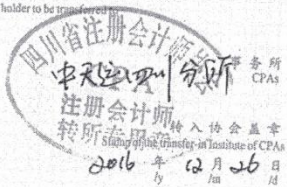 holder to be transferred to
四川省注册会计师协会
中天运四川分所 事务所
CPAs
注册会计师
转所专用章 转入协会盖章
Stamp of the transfer-in Institute of CPAs
2016 年 12 月 26 日
/y /m /d